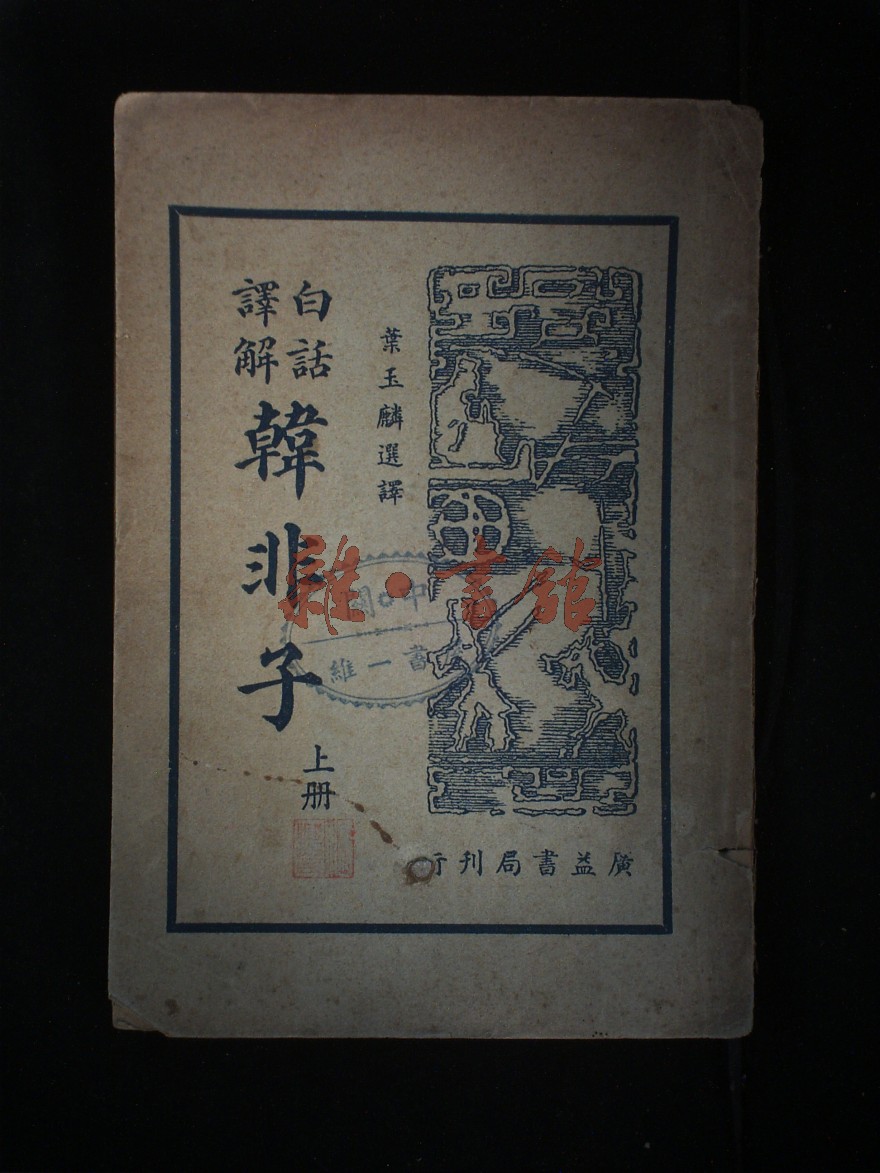 白話
譯解
韓非子
上册
葉玉麟選譯
廣益書局刊行
雜·書館
中
書一維